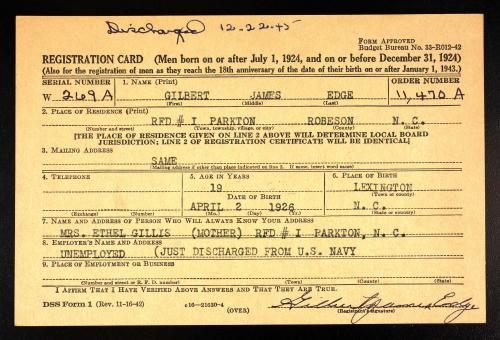 Discharged 12-22-45
FORM APPROVED
Budget Bureau No. 33-R012-42
REGISTRATION CARD (Men born on or after July 1, 1924, and on or before December 31, 1924)
(Also for the registration of men as they reach the 18th anniversary of the date of their birth on or after January 1, 1943.)
SERIAL NUMBER 1. NAME (Print) ORDER NUMBER
W 269A GILBERT JAMES EDGE 11,470 A
(First) (Middle) (Last)
2. PLACE OF RESIDENCE (Print)
RFD # I PARKTON ROBESON N. C.
(Number and street) (Town, township, village, or city) (County) (State)
[THE PLACE OF RESIDENCE GIVEN ON LINE 2 ABOVE WILL DETERMINE LOCAL BOARD
JURISDICTION; LINE 2 OF REGISTRATION CERTIFICATE WILL BE IDENTICAL]
3. MAILING ADDRESS
SAME
[Mailing address if other than place indicated on line 2. If same, insert word same]
4. TELEPHONE 5. AGE IN YEARS 6. PLACE OF BIRTH
19 LEXINGTON
DATE OF BIRTH (Town or county)
APRIL 2 1926 N. C.
(Exchange) (Number) (Mo.) (Day) (Yr.) (State or country)
7. NAME AND ADDRESS OF PERSON WHO WILL ALWAYS KNOW YOUR ADDRESS
MRS. ETHEL GILLIS (MOTHER) RFD # I PARKTON, N. C.
8. EMPLOYER'S NAME AND ADDRESS
UNEMPLOYED (JUST DISCHARGED FROM U.S. NAVY
9. PLACE OF EMPLOYMENT OR BUSINESS
(Number and street or R. F. D. number) (Town) (County) (State)
I AFFIRM THAT I HAVE VERIFIED ABOVE ANSWERS AND THAT THEY ARE TRUE.
DSS Form 1 (Rev. 11-16-42) c16—21630-4 Gilbert James Edge
(OVER) (Registrant's signature)